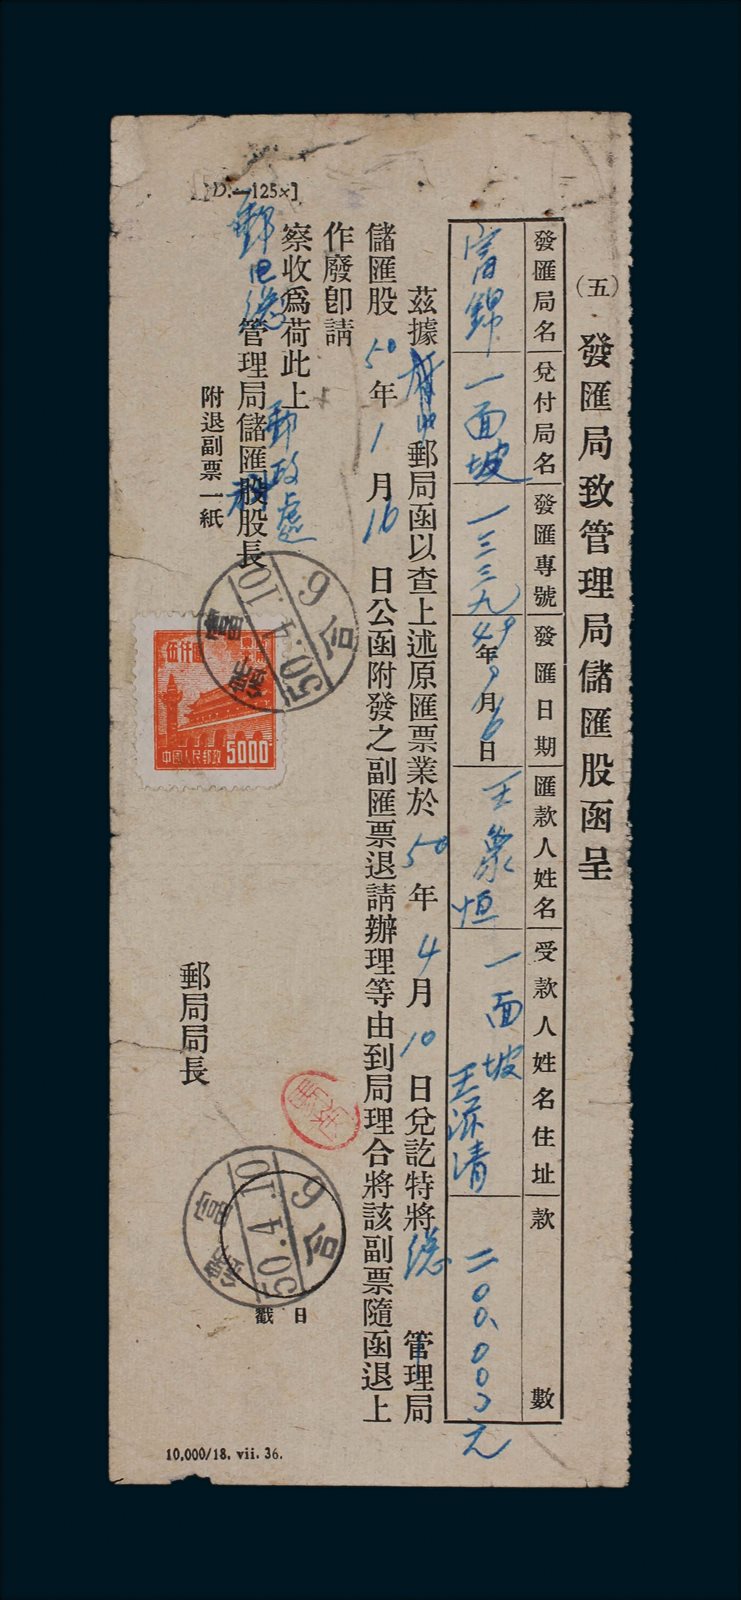 [D.—125x]
(五) 發匯局致管理局儲匯股函呈
發匯局名
兌付局名
發匯專號
發匯日期
匯款人姓名
受款人姓名住址
款數
富錦
一面坡
一三三九
49年 月16日
王 恒
一面坡
王 清
二00,000元
茲據 郵局函以查上述原匯票業於50年4月10日兌訖特將總管理局
儲匯股50年1月16日公函附發之副匯票退請辦理等由到局理合將該副票隨函退上
作廢卽請
察收爲荷此上
郵电總管理局儲匯股股長
郵政處
附退副票一紙
伍仟圓
中國人民郵政
5000
富錦
50.4.10
6
郵局局長
富錦
50.4.10
6
日戳
10,000/18. vii. 36.